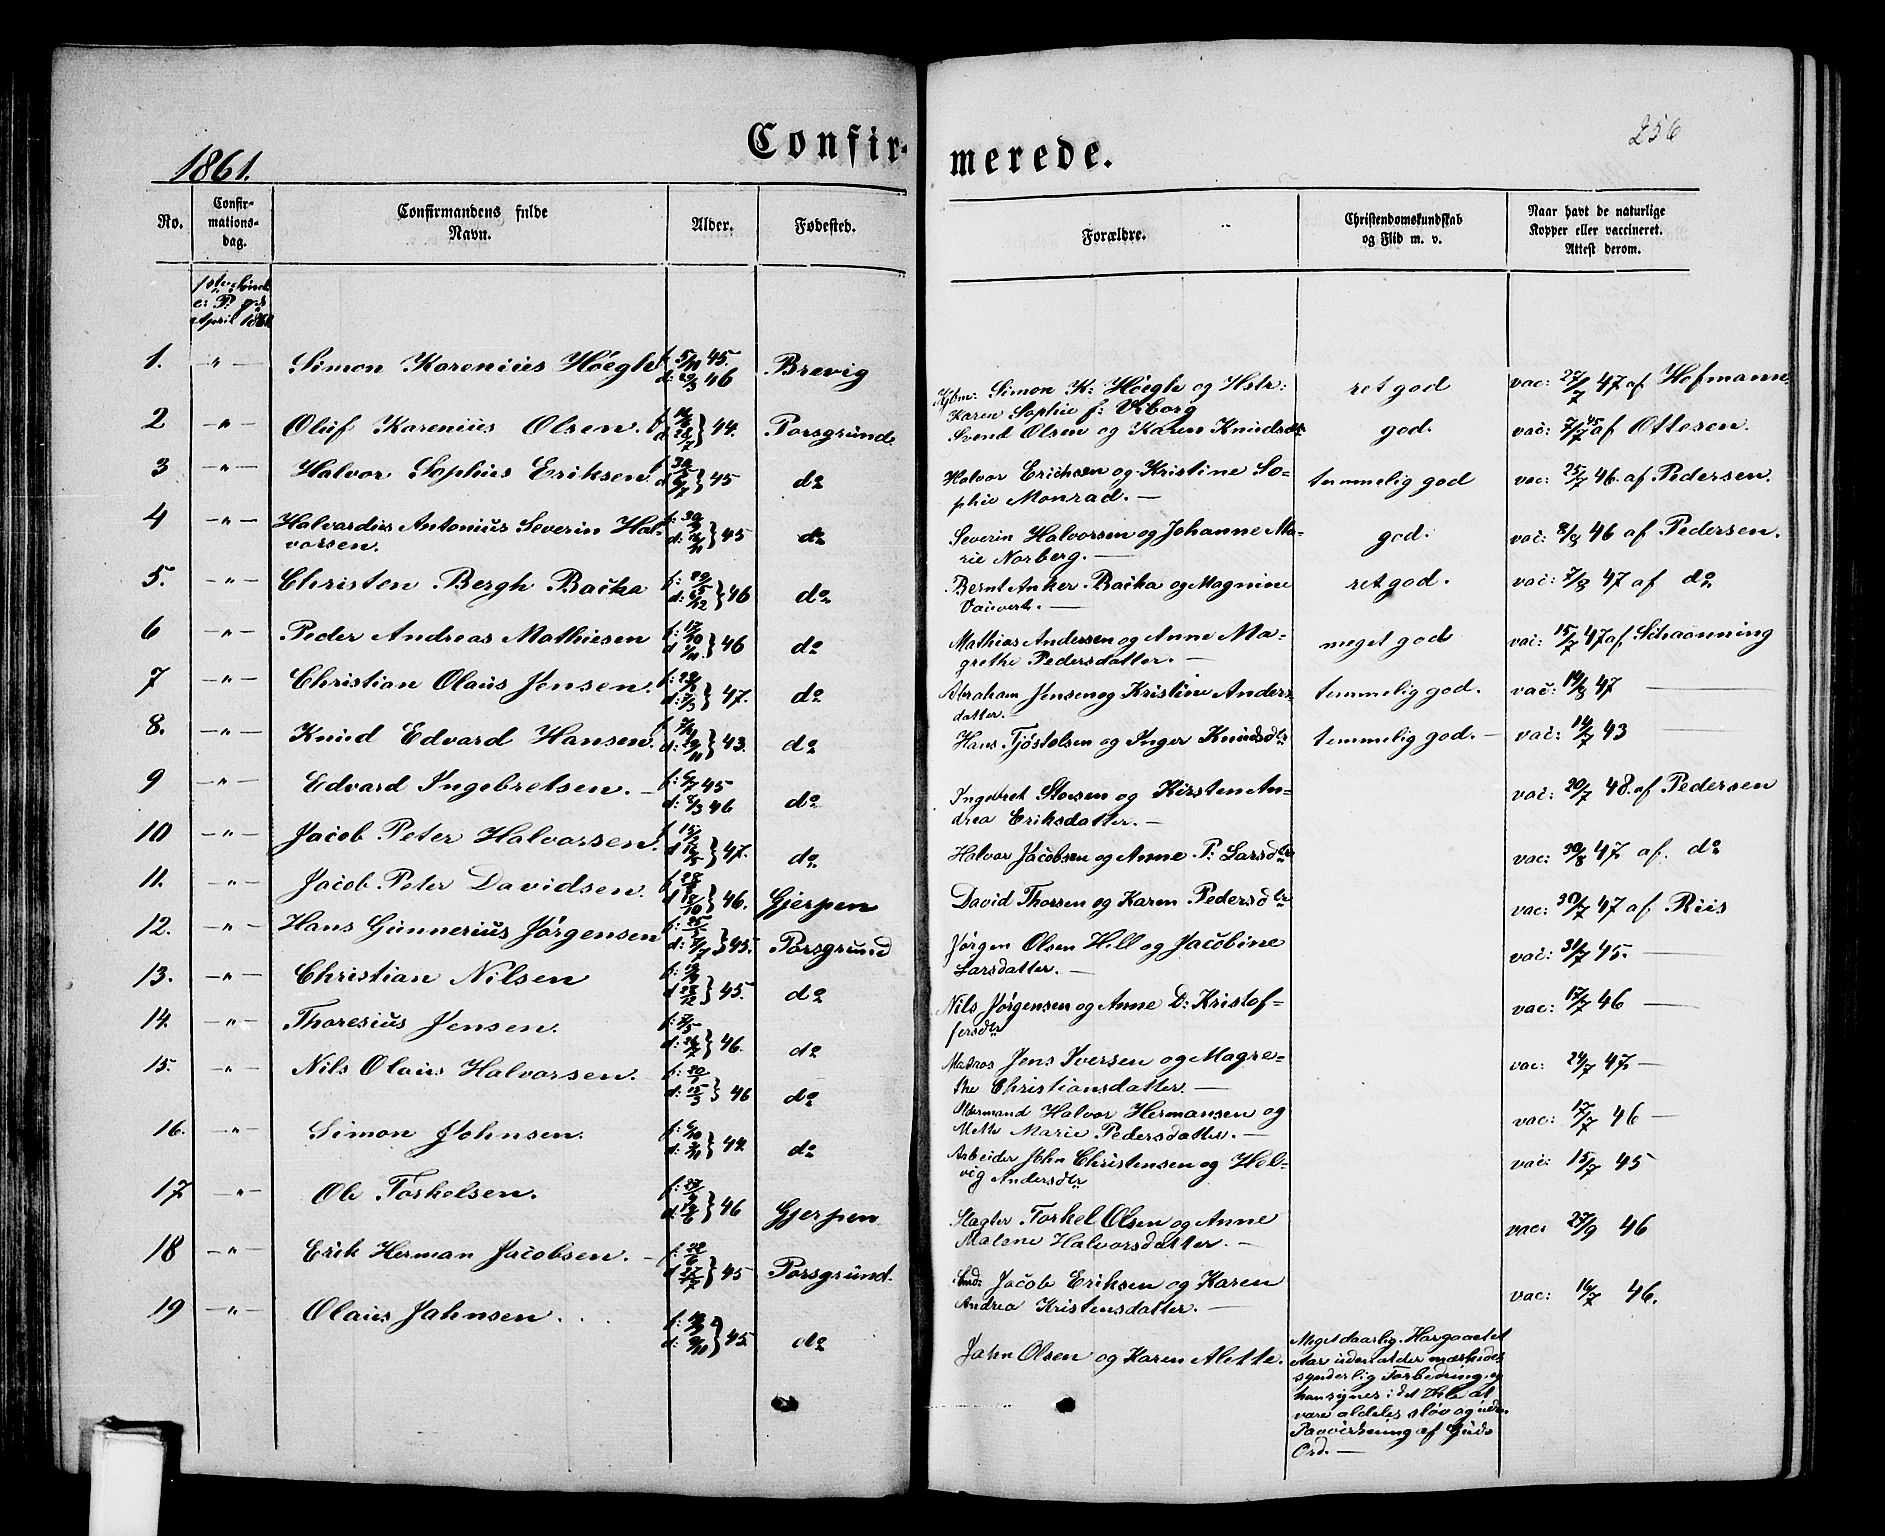 Confir-
merede.
256
1861.
No.
Confir-
mations-
dag.
Confirmandens fulde
Navn.
Alder.
Fødested.
Forældre.
Christendomskundskab
og Flid m. v.
Naar havt de naturlige
Kopper eller vaccineret.
Attest derom.
April 1861
1. -"- Simon Karenius Höegh f. 5/11 45. Brevig
d: 29/3 46
Kjbm: Simon K: Höegh og Hstr: ret god vac: 27/7 47 af Hofmann
Karen Sophie f: Viborg
2 -"- Oluf Karenius Olsen. 44. Porsgrund
Svend Olsen og Karen Knudsdtr god. vac: 7/7 45 af Ottesen.
3 -"- Halvor Sophus Eriksen 45 do
Halvor Erichsen og Kristine So- temmelig god vac: 25/7 46. af Pedersen.
phie Monrad. —
4 -"- Halvardus Antonius Severin Hal- 45 do
vorsen.
Severin Halvorsen og Johanne Ma- god. vac: 46 af Pedersen.
rie Norberg. —
5. -"- Christen Bergh Backa 46 do
Bernt Anker Backa og Magnine ret god. vac: 7/8 47 af do
6 -"- Peder Andreas Mathiesen 46 do
Mathias Andersen og Anne Ma- meget god vac: 15/7 47 af Schaanning
grethe Pedersdatter. —
7 -"- Christian Olaus Jensen. 47. do
Abraham Jensen og Kristine Anders- temmelig god. vac: 14/8 47 —
datter. —
8. -"- Knud Edvard Hansen. 43. do
Hans Tjöstolsen og Inger Knudsdtr temmelig god. — vac: 14/7 43 —
9 -"- Edvard Ingebretsen. — f: 6/7 45 do
d: 8/3 46
Ingebret Olsen og Kirsten An- vac: 20/7 48. af Pedersen
drea Eriksdatter. —
10 -"- Jacob Peter Halvorsen. 47. do
Halvor Jacobsen og Anne P: Larsdtr vac: 30/8 47 af. do
11. -"- Jacob Peter Davidsen. 46. Gjerpen
David Thorsen og Karen Pedersdtr vac: 30/7 47 af Riis
12. -"- Hans Gunnerius Jørgensen 45. Porsgrund
Jørgen Olsen Hill og Jacobine vac: 31/7 45. —
Larsdatter. —
13. -"- Christian Nilsen 45. do
Nils Jørgensen og Anne D: Kristof- vac: 17/7 46 —
fersdtr
14. -"- Thoresius Jensen. 46. do
Matros Jens Iversen og Magre- vac: 24/7 47. —
the Christiansdatter. —
15. -"- Nils Olaus Halvorsen. 46 do
Halvor Hermansen og vac: 17/7 46 —
Mette Marie Pedersdatter. —
16. -"- Simon Johnsen. 44. do
Arbeider John Christensen og Hel- vac: 15/7 45
vig Andersdtr
17 -"- Ole Torkelsen. 46 Gjerpen
Slagter Torkel Olsen og Anne vac: 27/9 46
Malene Halvorsdatter. —
18 -"- Erik Herman Jacobsen. — 45 Porsgrund.
Jacob Eriksen og Karen vac: 16/7 46.
Andrea Kristensdatter. —
19 -"- Olaus Jahnsen. 45 do
Jahn Olsen og Karen Alette.
Meget daarlig. Har gaaet et
Aar uden at der mærkedes
synderlig Forbedring, og
han synes i det Hele at
være aldeles sløv og uden
Paavirkning af Guds
Ord. —